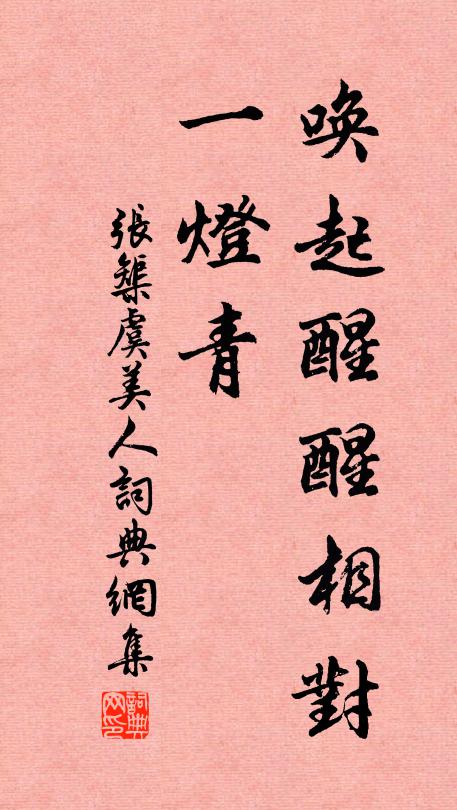 喚起醒醒相對
一燈青
張榘虞美人詞典網集
詞典
网印